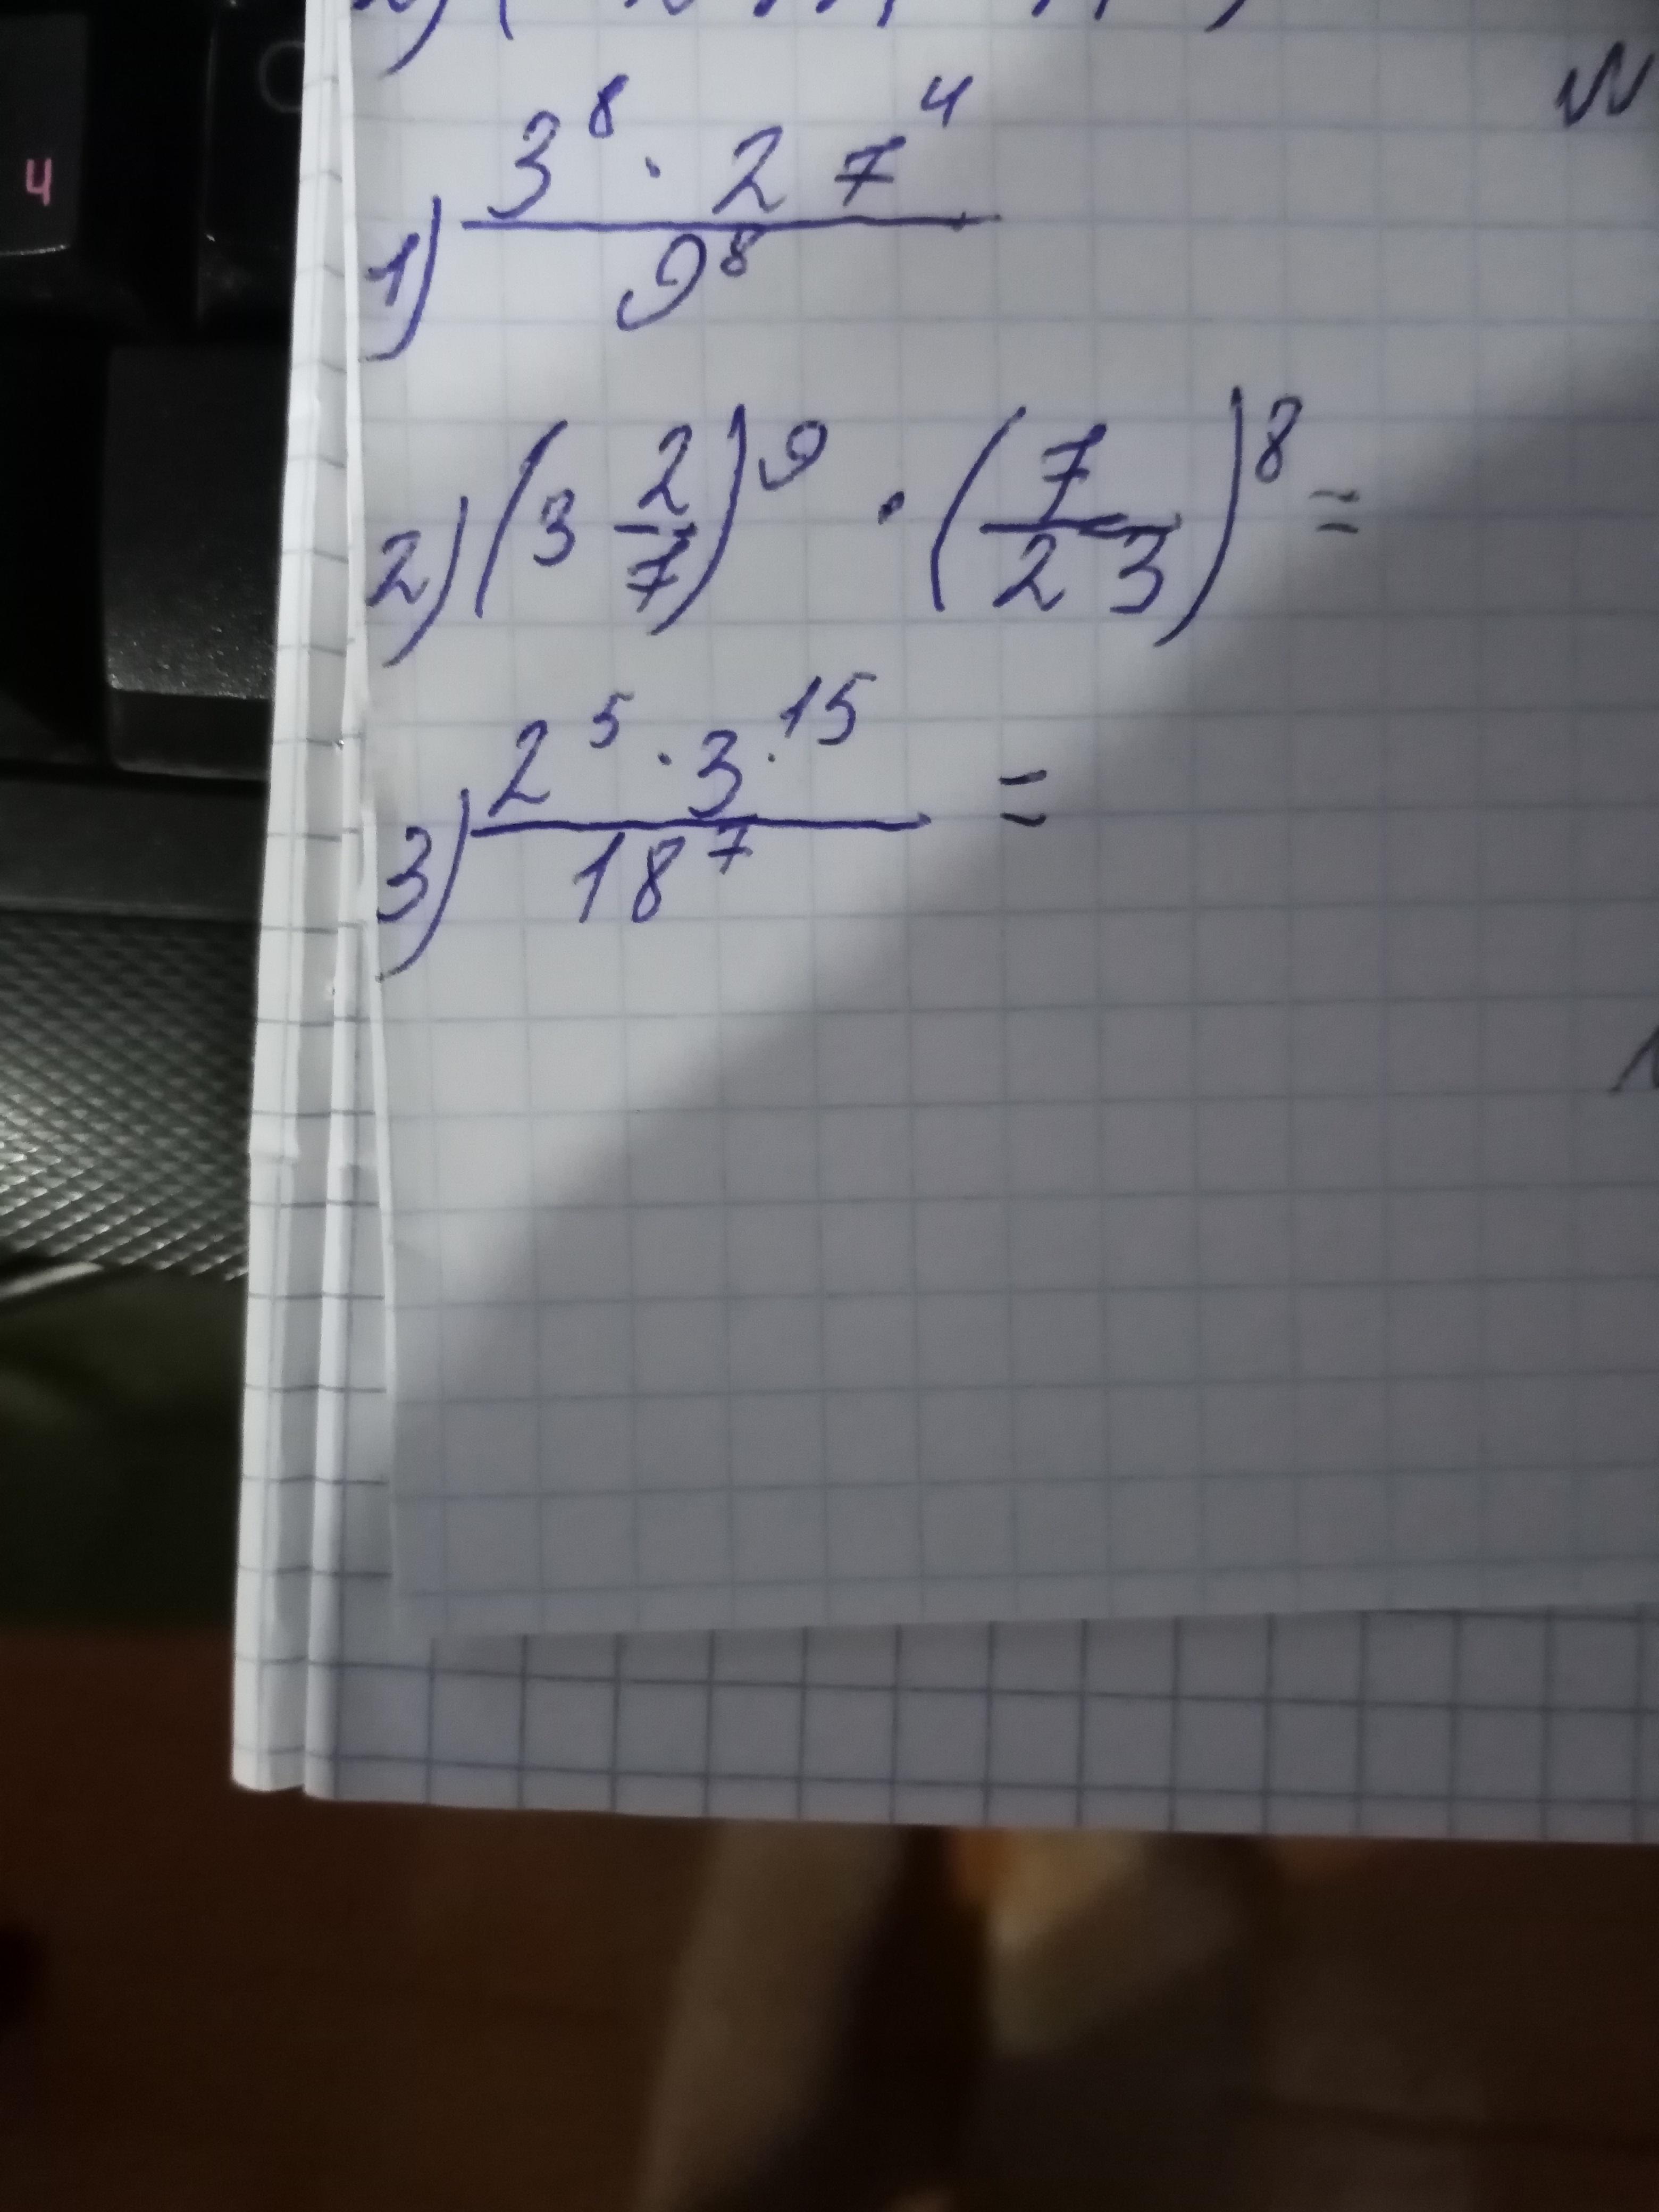 4
1) 3^8 · 27^4 / 9^8
2) (3 2/7)^9 · (7/23)^8 =
3) 2^5 · 3^15 / 18^7 =